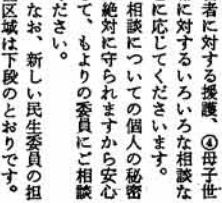 者に対する援護、④母子世
に対するいろいろな相談な
に応じてくださいます。
相談についての個人の秘密
絶対に守られますから安心
て、もよりの委員にご相談
ださい。
なお、新しい民生委員の担
区域は下段のとおりです。